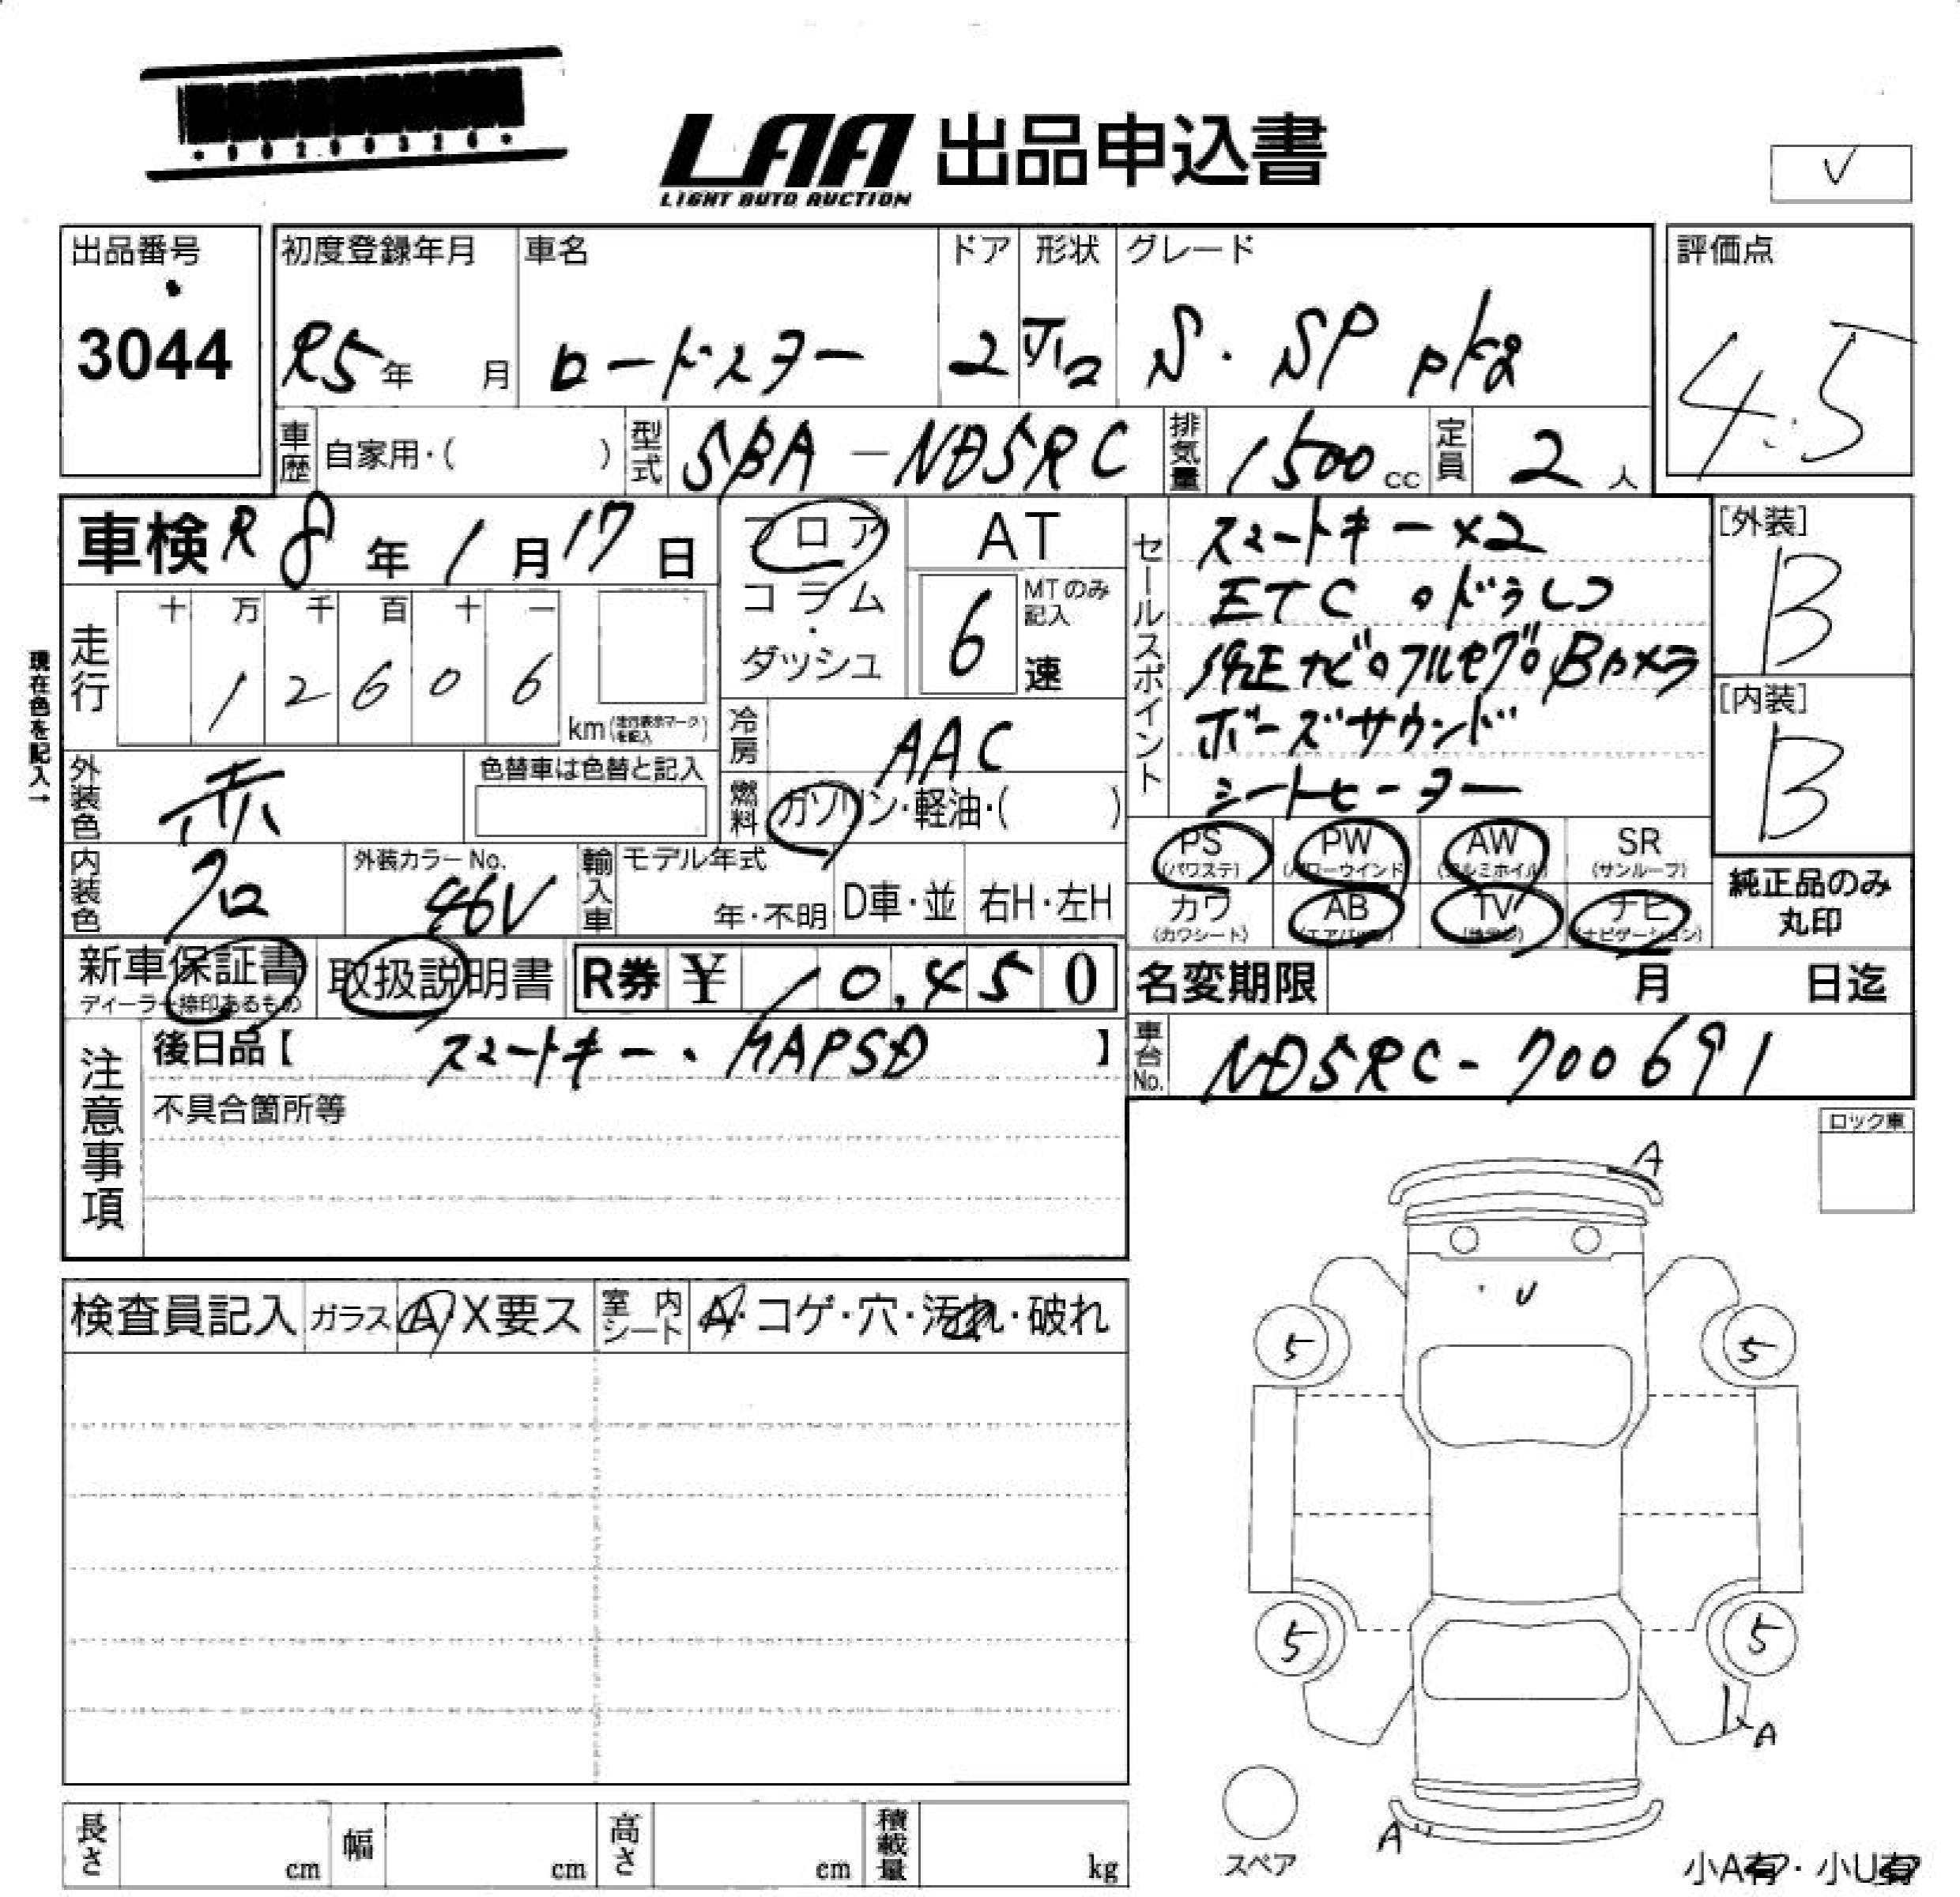 LAA 出品申込書
LIGHT AUTO AUCTION
V
出品番号
3044
初度登録年月
R5年 月
車名
ロードスター
ドア
2
形状
グレード
S・SP pkg
評価点
4.5
車歴 自家用・( )
型式 5BA-ND5RC
排気量 1500cc
定員 2人
車検 R8年1月17日
フロア
コラム
・
ダッシュ
AT
6
MTのみ記入
速
セールスポイント
スマートキー×2
ETC・ドラレコ
純正ナビ・フルセグ・Bカメラ
ボーズサウンド
シートヒーター
[外装]
B
[内装]
B
現在色を記入→
走行
十 万 千 百 十 一
1 2 6 0 6
km(走行表示マークを記入)
冷房 AAC
燃料 ガソリン・軽油・( )
外装色 赤
色替車は色替と記入
内装色 クロ
外装カラーNo.
46V
輸入車
モデル年式
年・不明
D車・並
右H・左H
PS
(パワステ)
PW
(パワーウインド)
AW
(アルミホイル)
SR
(サンルーフ)
カワ
(カワシート)
AB
(エアバッグ)
TV
ナビ
(ナビゲーション)
純正品のみ
丸印
新車保証書
ディーラー捺印あるもの
取扱説明書
R券 ¥ 10,450
名変期限 月 日迄
注意事項
後日品【 スマートキー、MAPSD 】
不具合箇所等
車台No. ND5RC-700691
ロック車
検査員記入
ガラス A・X要ス
室内シート A・コゲ・穴・汚れ・破れ
A
U
5 5
5 5
A
A
スペア
長さ cm
幅 cm
高さ cm
積載量 kg
小A有・小U有